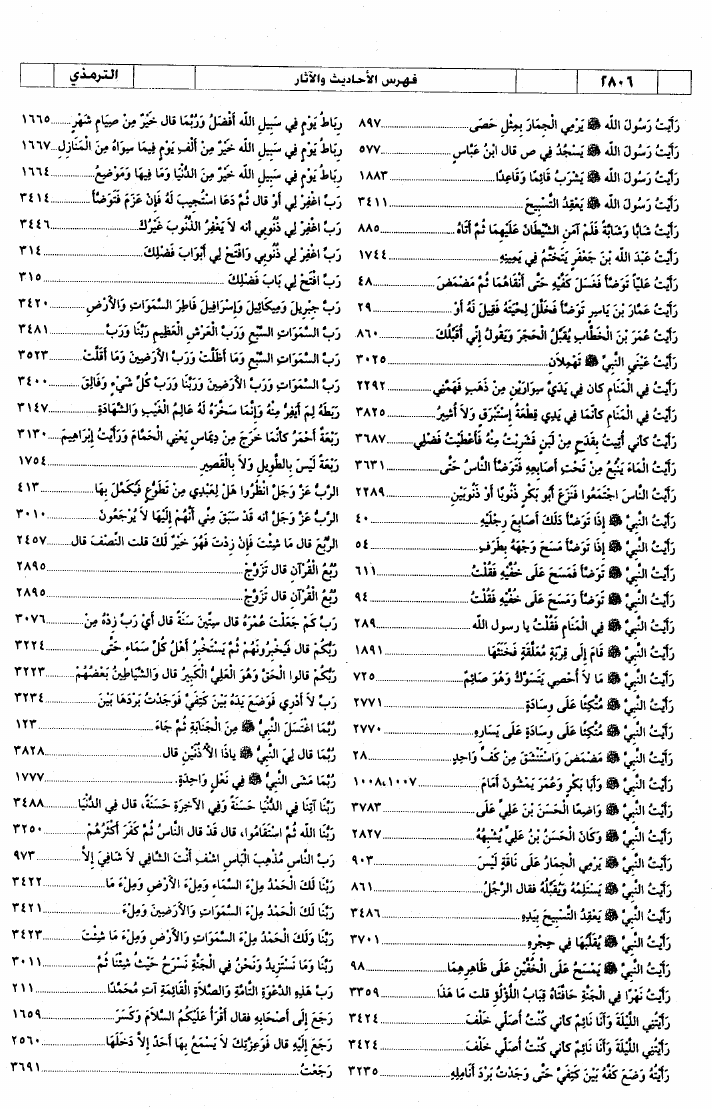 ٢٨٠٦ فهرس الأحاديث والآثار الترمذي
رَأَيْتُ رَسُولَ اللَّه ﷺ يَرْمِي الْجِمَارَ بِمِثْلِ حَصَى ٨٩٧
رَأَيْتُ رَسُولَ اللَّه ﷺ يَسْجُدُ فِي ص قال ابْنُ عَبَّاسٍ ٥٧٧
رَأَيْتُ رَسُولَ اللَّه ﷺ يَشْرَبُ قَائِمًا وَقَاعِدًا ١٨٨٣
رَأَيْتُ رَسُولَ اللَّه ﷺ يَعْقِدُ التَّسْبِيحَ ٣٤١١
رَأَيْتُ شَابًّا وَشَابَّةً فَلَمْ آمَنِ الشَّيْطَانَ عَلَيْهِمَا ثُمَّ أَتَاهُ ٨٨٥
رَأَيْتُ عَبْدَ اللَّه بْنَ جَعْفَرٍ يَتَخَتَّمُ فِي يَمِينِهِ ١٧٤٤
رَأَيْتُ عَلِيًّا تَوَضَّأَ فَغَسَلَ كَفَّيْهِ حَتَّى أَنْقَاهُمَا ثُمَّ مَضْمَضَ ٤٨
رَأَيْتُ عَمَّارَ بْنَ يَاسِرٍ تَوَضَّأَ فَخَلَّلَ لِحْيَتَهُ فَقِيلَ لَهُ أَوْ ٢٩
رَأَيْتُ عُمَرَ بْنَ الْخَطَّابِ يُقَبِّلُ الْحَجَرَ وَيَقُولُ إِنِّي أُقَبِّلُكَ ٨٦٠
رَأَيْتُ عَيْنَيِ النَّبِيِّ ﷺ تَهْمِلَانِ ٣٠٢٥
رَأَيْتُ فِي الْمَنَامِ كأن فِي يَدَيَّ سِوَارَيْنِ مِنْ ذَهَبٍ فَهَمَّنِي ٢٢٩٢
رَأَيْتُ فِي الْمَنَامِ كَأَنَّمَا فِي يَدِي قِطْعَةُ إِسْتَبْرَقٍ وَلاَ أُشِيرُ ٣٨٢٥
رَأَيْتُ كأني أُتِيتُ بِقَدَحٍ مِنْ لَبَنٍ فَشَرِبْتُ مِنْهُ فَأَعْطَيْتُ فَضْلِي ٣٦٨٧
رَأَيْتُ الْمَاءَ يَنْبُعُ مِنْ تَحْتِ أَصَابِعِهِ فَتَوَضَّأَ النَّاسُ حَتَّى ٣٦٣١
رَأَيْتُ النَّاسَ اجْتَمَعُوا فَنَزَعَ أَبُو بَكْرٍ ذَنُوبًا أَوْ ذَنُوبَيْنِ ٢٢٨٩
رَأَيْتُ النَّبِيَّ ﷺ إِذَا تَوَضَّأَ دَلَكَ أَصَابِعَ رِجْلَيْهِ ٤٠
رَأَيْتُ النَّبِيَّ ﷺ إِذَا تَوَضَّأَ مَسَحَ وَجْهَهُ بِطَرَفِ ٥٤
رَأَيْتُ النَّبِيَّ ﷺ تَوَضَّأَ فَمَسَحَ عَلَى خُفَّيْهِ فَقُلْتُ ٦١١
رَأَيْتُ النَّبِيَّ ﷺ تَوَضَّأَ وَمَسَحَ عَلَى خُفَّيْهِ فَقُلْتُ ٩٤
رَأَيْتُ النَّبِيَّ ﷺ فِي الْمَنَامِ فَقُلْتُ يا رسول اللَّه ٢٨٩
رَأَيْتُ النَّبِيَّ ﷺ قَامَ إِلَى قِرْبَةٍ مُعَلَّقَةٍ فَخَنَثَهَا ١٨٩١
رَأَيْتُ النَّبِيَّ ﷺ مَا لاَ أُحْصِي يَتَسَوَّكُ وَهُوَ صَائِمٌ ٧٢٥
رَأَيْتُ النَّبِيَّ ﷺ مُتَّكِئًا عَلَى وِسَادَةٍ ٢٧٧١
رَأَيْتُ النَّبِيَّ ﷺ مُتَّكِئًا عَلَى وِسَادَةٍ عَلَى يَسَارِهِ ٢٧٧٠
رَأَيْتُ النَّبِيَّ ﷺ مَضْمَضَ وَاسْتَنْشَقَ مِنْ كَفٍّ وَاحِدٍ ٢٨
رَأَيْتُ النَّبِيَّ ﷺ وَأَبَا بَكْرٍ وَعُمَرَ يَمْشُونَ أَمَامَ ١٠٠٧، ١٠٠٨
رَأَيْتُ النَّبِيَّ ﷺ وَاضِعًا الْحَسَنَ بْنَ عَلِيٍّ عَلَى ٣٧٨٣
رَأَيْتُ النَّبِيَّ ﷺ وَكَانَ الْحَسَنُ بْنُ عَلِيٍّ يُشْبِهُهُ ٢٨٢٧
رَأَيْتُ النَّبِيَّ ﷺ يَرْمِي الْجِمَارَ عَلَى نَاقَةٍ لَيْسَ ٩٠٣
رَأَيْتُ النَّبِيَّ ﷺ يَسْتَلِمُهُ وَيُقَبِّلُهُ فقال الرَّجُلُ ٨٦١
رَأَيْتُ النَّبِيَّ ﷺ يَعْقِدُ التَّسْبِيحَ بِيَدِهِ ٣٤٨٦
رَأَيْتُ النَّبِيَّ ﷺ يُقَلِّبُهَا فِي حِجْرِهِ ٣٧٠١
رَأَيْتُ النَّبِيَّ ﷺ يَمْسَحُ عَلَى الْخُفَّيْنِ عَلَى ظَاهِرِهِمَا ٩٨
رَأَيْتُ نَهْرًا فِي الْجَنَّةِ حَافَتَاهُ قِبَابُ اللُّؤْلُؤِ قلت مَا هَذَا ٣٣٥٩
رَأَيْتُنِي اللَّيْلَةَ وَأَنَا نَائِمٌ كأني كُنْتُ أُصَلِّي خَلْفَ ٣٤٢٤
رَأَيْتُنِي اللَّيْلَةَ وَأَنَا نَائِمٌ كأني كُنْتُ أُصَلِّي خَلْفَ ٣٤٢٤
رَأَيْتُهُ وَضَعَ كَفَّهُ بَيْنَ كَتِفَيَّ حَتَّى وَجَدْتُ بَرْدَ أَنَامِلِهِ ٣٢٣٥
رِبَاطُ يَوْمٍ فِي سَبِيلِ اللَّه أَفْضَلُ وَرُبَّمَا قال خَيْرٌ مِنْ صِيَامِ شَهْرٍ ١٦٦٥
رِبَاطُ يَوْمٍ فِي سَبِيلِ اللَّه خَيْرٌ مِنْ أَلْفِ يَوْمٍ فِيمَا سِوَاهُ مِنَ الْمَنَازِلِ ١٦٦٧
رِبَاطُ يَوْمٍ فِي سَبِيلِ اللَّه خَيْرٌ مِنَ الدُّنْيَا وَمَا فِيهَا وَمَوْضِعُ ١٦٦٤
رَبِّ اغْفِرْ لِي أَوْ قال ثُمَّ دَعَا اسْتُجِيبَ لَهُ فَإِنْ عَزَمَ فَتَوَضَّأَ ٣٤١٤
رَبِّ اغْفِرْ لِي ذُنُوبِي انه لاَ يَغْفِرُ الذُّنُوبَ غَيْرُكَ ٣٤٤٦
رَبِّ اغْفِرْ لِي ذُنُوبِي وَافْتَحْ لِي أَبْوَابَ فَضْلِكَ ٣١٤
رَبِّ افْتَحْ لِي بَابَ فَضْلِكَ ٣١٥
رَبَّ جِبْرِيلَ وَمِيكَائِيلَ وَإِسْرَافِيلَ فَاطِرَ السَّمَوَاتِ وَالأَرْضِ ٣٤٢٠
رَبِّ السَّمَوَاتِ السَّبْعِ وَرَبَّ الْعَرْشِ الْعَظِيمِ رَبَّنَا وَرَبَّ ٣٤٨١
رَبَّ السَّمَوَاتِ السَّبْعِ وَمَا أَظَلَّتْ وَرَبَّ الأَرَضِينَ وَمَا أَقَلَّتْ ٣٥٢٣
رَبَّ السَّمَوَاتِ وَرَبَّ الأَرَضِينَ وَرَبَّنَا وَرَبَّ كُلِّ شَيْءٍ وَفَالِقَ ٣٤٠٠
رَبَطَهُ لِمَ أَيَفِرُّ مِنْهُ وَإِنَّمَا سَخَّرَهُ لَهُ عَالِمُ الْغَيْبِ وَالشَّهَادَةِ ٣١٤٧
رَبْعَةٌ أَحْمَرُ كَأَنَّمَا خَرَجَ مِنْ دِيمَاسٍ يَعْنِي الْحَمَّامَ وَرَأَيْتُ إِبْرَاهِيمَ ٣١٣٠
رَبْعَةً لَيْسَ بِالطَّوِيلِ وَلاَ بِالْقَصِيرِ ١٧٥٤
الرَّبُّ عَزَّ وَجَلَّ انْظُرُوا هَلْ لِعَبْدِي مِنْ تَطَوُّعٍ فَيُكَمَّلَ بِهَا ٤١٣
الرَّبُّ عَزَّ وَجَلَّ انه قَدْ سَبَقَ مِنِّي أَنَّهُمْ إِلَيْهَا لاَ يُرْجَعُونَ ٣٠١٠
الرُّبُعَ قال مَا شِئْتَ فَإِنْ زِدْتَ فَهُوَ خَيْرٌ لَكَ قلت النِّصْفَ قال ٢٤٥٧
رُبُعُ الْقُرْآنِ قال تَزَوَّجْ ٢٨٩٥
رُبُعُ الْقُرْآنِ قال تَزَوَّجْ ٢٨٩٥
رَبِّ كَمْ جَعَلْتَ عُمْرَهُ قال سِتِّينَ سَنَةً قال أَيْ رَبِّ زِدْهُ مِنْ ٣٠٧٦
رَبُّكُمْ قال فَيُخْبِرُونَهُمْ ثُمَّ يَسْتَخْبِرُ أَهْلُ كُلِّ سَمَاءٍ حَتَّى ٣٢٢٤
رَبُّكُمْ قالوا الْحَقَّ وَهُوَ الْعَلِيُّ الْكَبِيرُ قال وَالشَّيَاطِينُ بَعْضُهُمْ ٣٢٢٣
رَبِّ لاَ أَدْرِي فَوَضَعَ يَدَهُ بَيْنَ كَتِفَيَّ فَوَجَدْتُ بَرْدَهَا بَيْنَ ٣٢٣٤
رُبَّمَا اغْتَسَلَ النَّبِيُّ ﷺ مِنَ الْجَنَابَةِ ثُمَّ جَاءَ ١٢٣
رُبَّمَا قال لِيَ النَّبِيُّ ﷺ يَاذَا الأُذُنَيْنِ قال ٣٨٢٨
رُبَّمَا مَشَى النَّبِيُّ ﷺ فِي نَعْلٍ وَاحِدَةٍ. ١٧٧٧
رَبَّنَا آتِنَا فِي الدُّنْيَا حَسَنَةً وَفِي الآخِرَةِ حَسَنَةً، قال فِي الدُّنْيَا ٣٤٨٨
رَبُّنَا اللَّه ثُمَّ اسْتَقَامُوا، قال قَدْ قال النَّاسُ ثُمَّ كَفَرَ أَكْثَرُهُمْ ٣٢٥٠
رَبَّ النَّاسِ مُذْهِبَ الْبَاسِ اشْفِ أَنْتَ الشَّافِي لاَ شَافِيَ إِلاَّ ٩٧٣
رَبَّنَا لَكَ الْحَمْدُ مِلْءَ السَّمَاءِ وَمِلْءَ الأَرْضِ وَمِلْءَ مَا ٣٤٢٢
رَبَّنَا لَكَ الْحَمْدُ مِلْءَ السَّمَوَاتِ وَالأَرَضِينَ وَمِلْءَ ٣٤٢١
رَبَّنَا وَلَكَ الْحَمْدُ مِلْءَ السَّمَوَاتِ وَالأَرْضِ وَمِلْءَ مَا شِئْتَ ٣٤٢٣
رَبَّنَا وَمَا نَسْتَزِيدُ وَنَحْنُ فِي الْجَنَّةِ نَسْرَحُ حَيْثُ شِئْنَا ثُمَّ ٣٠١١
رَبَّ هَذِهِ الدَّعْوَةِ التَّامَّةِ وَالصَّلاَةِ الْقَائِمَةِ آتِ مُحَمَّدًا ٢١١
رَجَعَ إِلَى أَصْحَابِهِ فقال أَقْرَأُ عَلَيْكُمُ السَّلاَمَ وَكَسَرَ ١٦٥٩
رَجَعَ إِلَيْهِ قال فَوَعِزَّتِكَ لاَ يَسْمَعُ بِهَا أَحَدٌ إِلاَّ دَخَلَهَا ٢٥٦٠
رَجَعْتُ ٣٦٩١